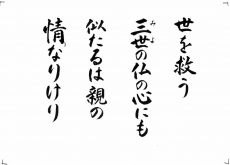 世を救う
三世の仏の心にも
似たるは親の
情なりけり